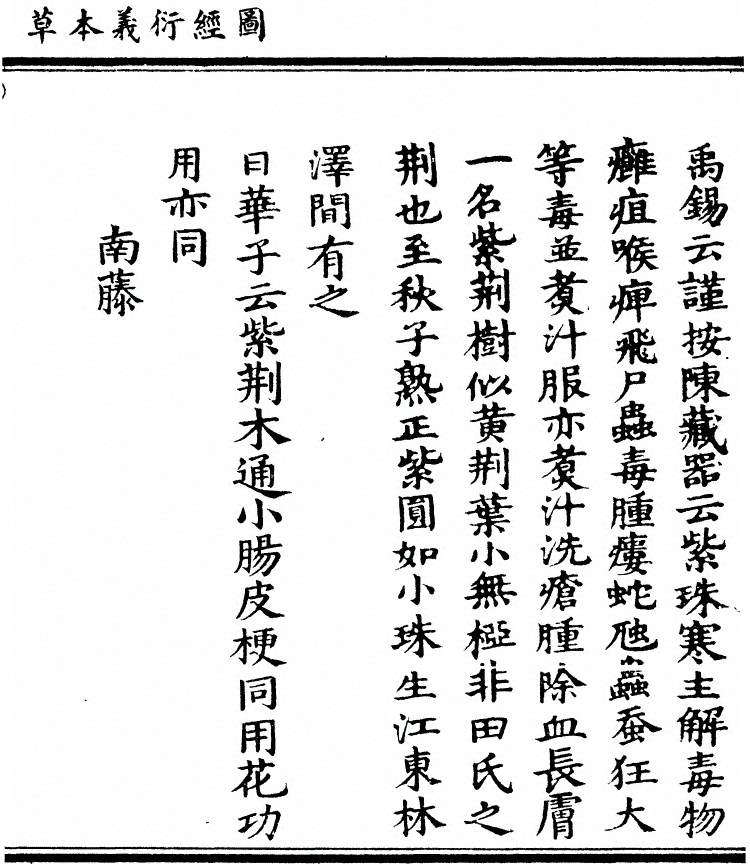 圖經衍義本草
禹錫云謹按陳藏器云紫珠寒主解毒物
癰疽喉痺飛尸蠱毒腫瘻蛇虺蟲蚕狂大
等毒並煑汁服亦煑汁洗瘡腫除血長膚
一名紫荆樹似黃荆葉小無椏非田氏之
荆也至秋子熟正紫圓如小珠生江東林
澤間有之
日華子云紫荆木通小腸皮梗同用花功
用亦同
南藤